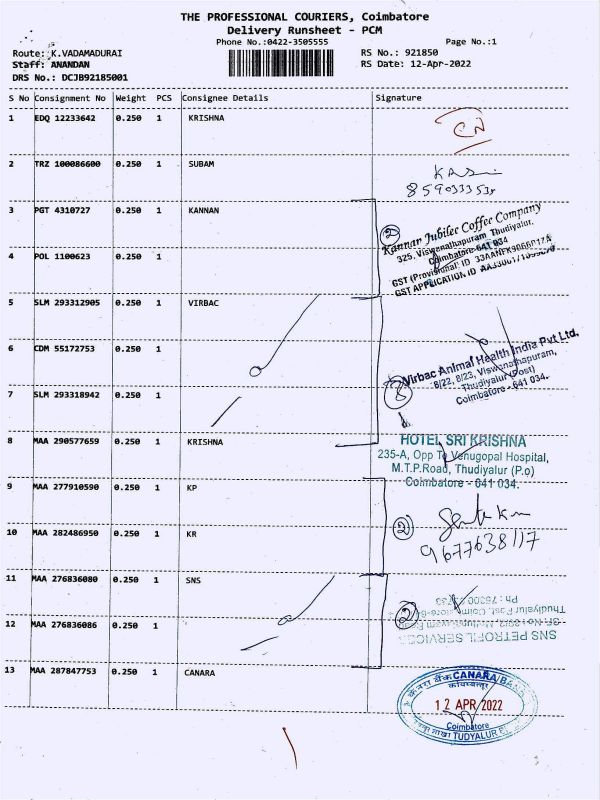 THE PROFESSIONAL COURIERS, Coimbatore
Delivery Runsheet - PCM
Phone No.:0422-3505555
Page No.:1
Route: K.VADAMADURAI
RS No.: 921850
Staff: ANANDAN
RS Date: 12-Apr-2022
DRS No.: DCJB92185001
S No Consignment No Weight PCS Consignee Details Signature
1 EDQ 12233642 0.250 1 KRISHNA
2 TRZ 100086600 0.250 1 SUBAM
3 PGT 4310727 0.250 1 KANNAN
2
Kannan Jubilee Coffee Company
325, Viswanathapuram, Thudiyalur,
Coimbatore-641 034
4 POL 1100623 0.250 1
GST (Provisional) ID
GST APPLICATION ID
5 SLM 293312905 0.250 1 VIRBAC
6 CDM 55172753 0.250 1
Virbac Animal Health India Pvt Ltd.
8/22, 8/23, Viswanathapuram,
Thudiyalur (Post)
Coimbatore - 641 034.
7 SLM 293318942 0.250 1
8 MAA 290577659 0.250 1 KRISHNA
HOTEL SRI KRISHNA
235-A, Opp To Venugopal Hospital,
M.T.P.Road, Thudiyalur (P.o)
Coimbatore - 641 034.
9 MAA 277910590 0.250 1 KP
10 MAA 282486950 0.250 1 KR
2
9677638117
11 MAA 276836080 0.250 1 SNS
12 MAA 276836086 0.250 1
2
SNS PETROFIL SERVICES
13 MAA 287847753 0.250 1 CANARA
केनरा बैंक CANARA BANK
कोयम्बत्तूर
12 APR 2022
Coimbatore
शाखा TUDYALUR